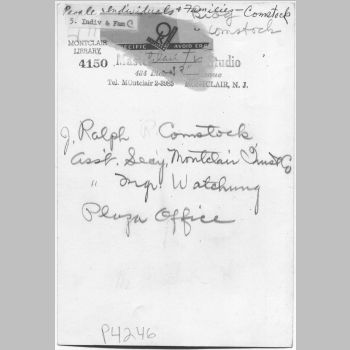 Individuals & Families - Comstock
5. Indiv & Fam C
Comstock
MONTCLAIR
LIBRARY
4150
BE SPECIFIC AVOID ERR
Studio
Tel. MOntclair 2-
MONTCLAIR, N. J.
J. Ralph Comstock
Ass't. Sec'y, Montclair Trust Co
" Mgr. Watchung
Plaza Office
P4246